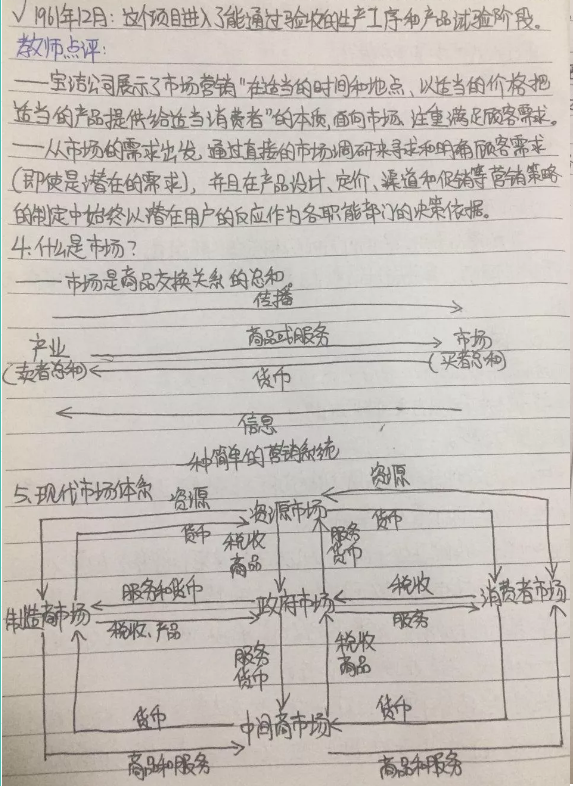 √ 1961年12月：这个项目进入了能通过验收的生产工序和产品试验阶段。
教师点评：
——宝洁公司展示了市场营销“在适当的时间和地点、以适当的价格把
适当的产品提供给适当消费者”的本质，面向市场、注重满足顾客需求。
——从市场的需求出发，通过直接的市场调研来寻求和明确顾客需求
(即使是潜在的需求)，并且在产品设计、定价、渠道和促销等营销策略
的制定中始终以潜在用户的反应作为各职能部门的决策依据。
4.什么是市场？
——市场是商品交换关系的总和。
传播
产业 商品或服务 市场
(卖者总和) 货币 (买者总和)
信息
一种简单的营销系统
5.现代市场体系
资源 资源
货币 资源市场 货币
税收 商品 服务 货币
服务和货币 税收
制造商市场 政府市场 消费者市场
税收、产品 服务
服务 货币 税收 商品
货币 中间商市场 货币
商品和服务 商品和服务